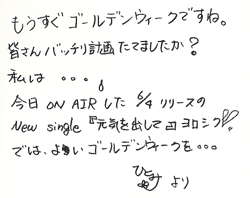 もうすぐゴールデンウィークですね。
皆さんバッチリ計画たてましたか?
私は・・・。
今日 ON AIR した 6/4 リリースの
New single 『元気を出して』ヨロシク!!
では、よいゴールデンウィークを・・・
ひとみ より